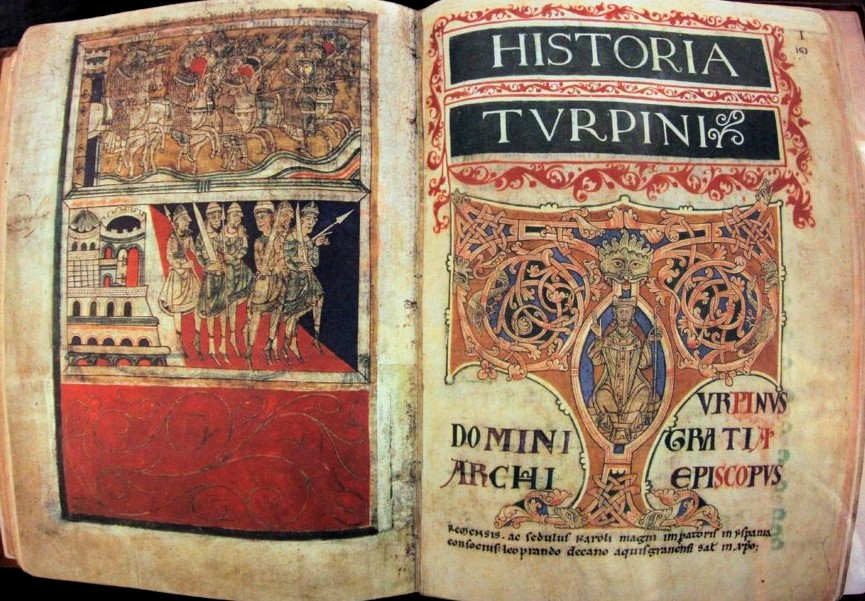 I
163
HISTORIA
TVRPINI
T
VRPINVS
DOMINI GRATIA
ARCHI EPISCOPVS
Remensis. ac sedulus Karoli magni imperatoris in yspania
consocius: leoprando decano aquisgranensi sal in xpo;